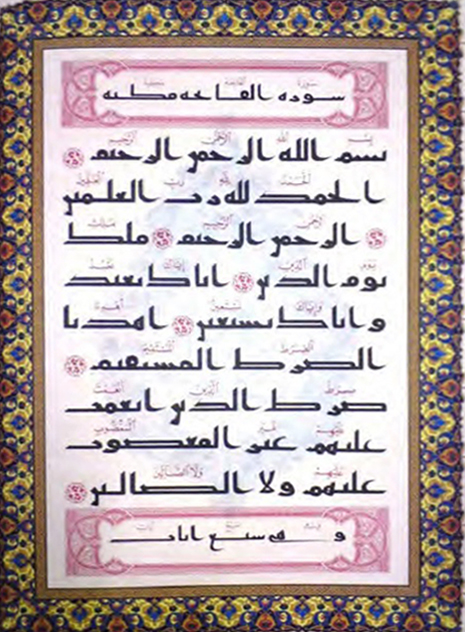 سورة الفاتحة مكية
بسم الله الرحمن الرحيم
الحمد لله رب العلمين
الرحمن الرحيم ملك
يوم الدين اياك نعبد
واياك نستعين اهدنا
الصرط المستقيم
صرط الذين انعمت
عليهم غير المغضوب
عليهم ولا الضالين
وهي سبع ايات